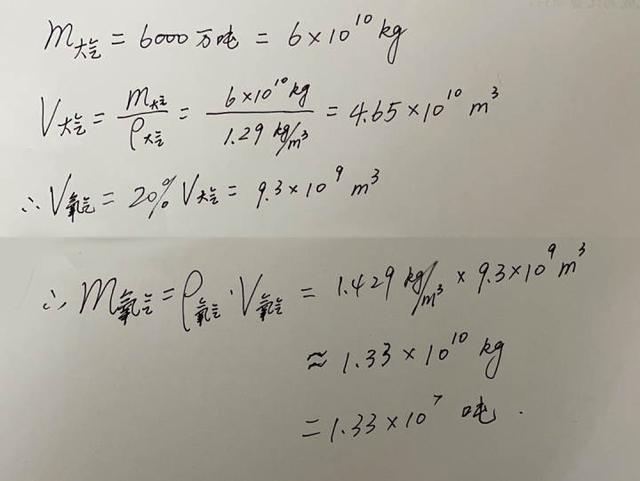 m大气 = 6000万吨 = 6×10¹⁰ kg
V大气 = m大气/ρ大气 = 6×10¹⁰ kg / 1.29 kg/m³ = 4.65×10¹⁰ m³
∴ V氧气 = 20% V大气 = 9.3×10⁹ m³
∴ m氧气 = ρ氧气·V氧气 = 1.429 kg/m³ × 9.3×10⁹ m³
≈ 1.33×10¹⁰ kg
= 1.33×10⁷ 吨.